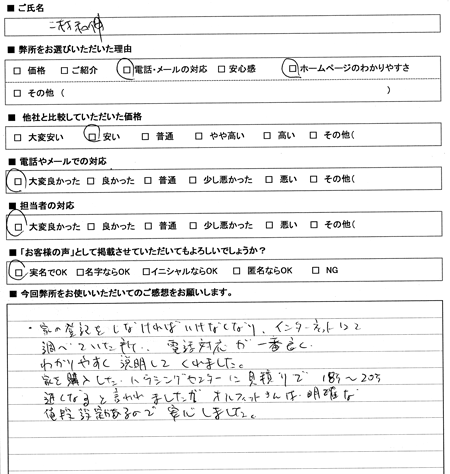 ■ ご氏名
■ 弊所をお選びいただいた理由
□ 価格 □ ご紹介 □ 電話・メールの対応 □ 安心感 □ ホームページのわかりやすさ
□ その他 ( )
■ 他社と比較していただいた価格
□ 大変安い □ 安い □ 普通 □ やや高い □ 高い □ その他(
■ 電話やメールでの対応
□ 大変良かった □ 良かった □ 普通 □ 少し悪かった □ 悪い □ その他(
■ 担当者の対応
□ 大変良かった □ 良かった □ 普通 □ 少し悪かった □ 悪い □ その他(
■ 「お客様の声」として掲載させていただいてもよろしいでしょうか?
□ 実名でOK □ 名字ならOK □ イニシャルならOK □ 匿名ならOK □ NG
■ 今回弊所をお使いいただいてのご感想をお願いします。
・家の登記をしなければいけなくなり、インターネットにて
調べていた所、電話対応が一番良く、
わかりやすく説明してくれました。
家を購入したハウジングセンターに見積りで 18万〜20万
近くなると言われましたが オルフィットさんは、明確な
値段設定があるので 安心しました。